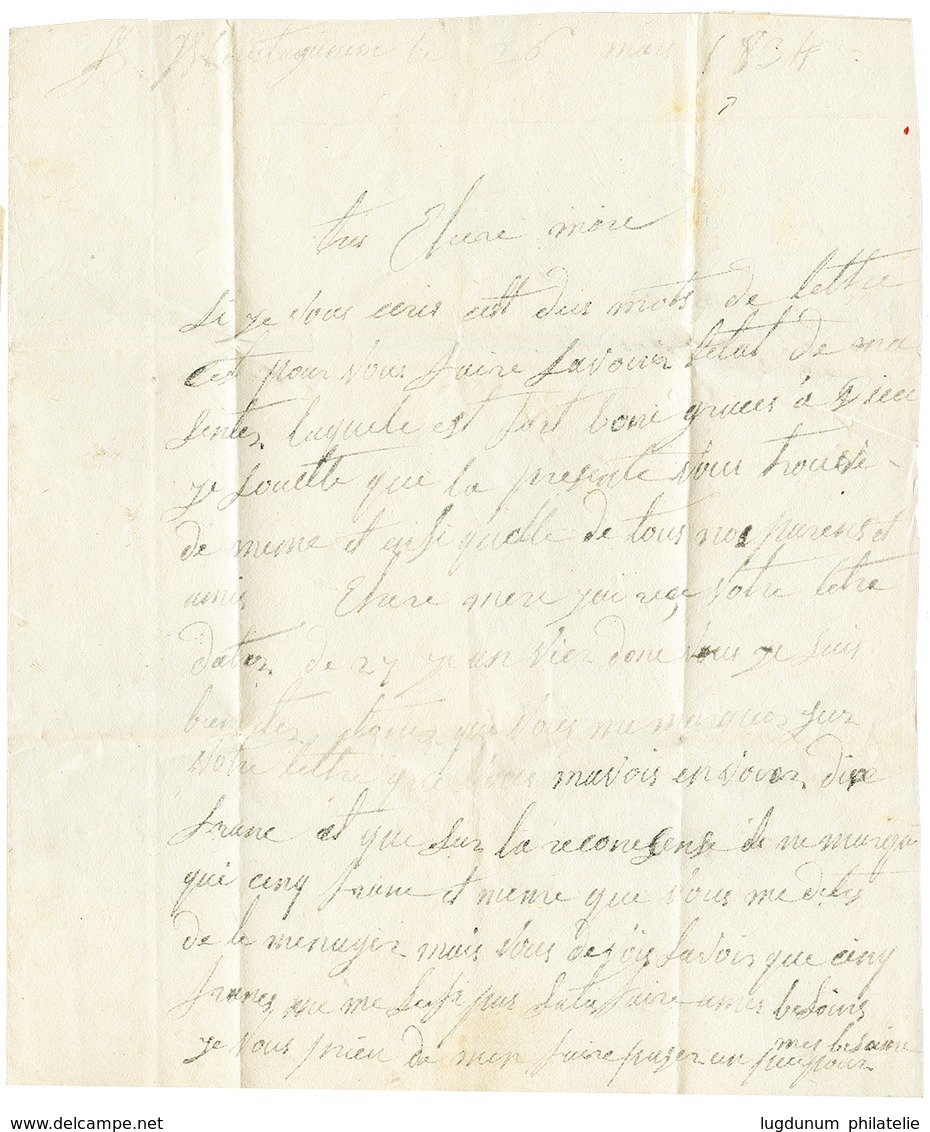 le 26 mars 1834
tres Chere mere
si je vous ecris cest deus mots de lettre
cest pour vous faire savoir letat de ma
sentez laquele est fort bone graces à Dieu
je souette que la presente vous trouve
de meme et insi quelle de tous nos parens et
amis Chere mere jai reçe votre letre
datez de 27 jeanvier donc vous je suis
bien etonez que vous me marquez sur
votre lettre que vous mavois envoyez dix
franc et que sur la reconesense il ne marque
que cinq franc et meme que vous me dites
de le menager mais vous devois savoir que cinq
francs ne me sufi pas satisfaire a mes besoins
je vous prieu de men faire passer un peu pour
mes besoine
www.delcampe.net lugdunum philatelie